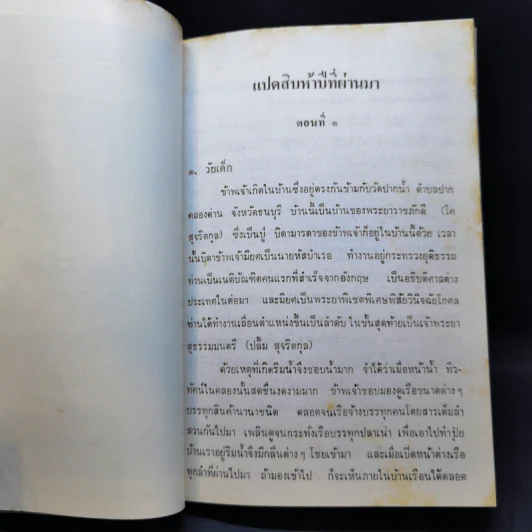 แปดสิบห้าปีที่ผ่านมา
ตอนที่ ๑
๑. วัยเด็ก
ข้าพเจ้าเกิดในบ้านซึ่งอยู่ตรงกันข้ามกับวัดปากน้ำ ตำบลปาก
คลองด่าน จังหวัดธนบุรี บ้านนี้เป็นบ้านของพระยาราชภักดี (โค
สุจริตกุล) ซึ่งเป็นปู่ บิดามารดาของข้าพเจ้าก็อยู่ในบ้านนี้ด้วย เวลา
นั้นบิดาข้าพเจ้ามียศเป็นนายหัสบำเรอ ทำงานอยู่กระทรวงยุติธรรม
ท่านเป็นเนติบัณฑิตคนแรกที่สำเร็จจากอังกฤษ เป็นอธิบดีศาลต่าง
ประเทศในต่อมา และมียศเป็นพระยาพิเชตพิเศษพิสัยวินิจฉัยโกศล
ท่านได้ทำงานเลื่อนตำแหน่งขึ้นเป็นลำดับ ในขั้นสุดท้ายเป็นเจ้าพระยา
สุธรรมมนตรี (ปลื้ม สุจริตกุล)
ด้วยเหตุที่เกิดริมน้ำจึงชอบน้ำมาก จำได้ว่าเมื่อหน้าน้ำ ทิว
ทัศน์ในคลองนั้นสดชื่นงดงามมาก ข้าพเจ้าชอบมองดูเรือขนาดต่างๆ
บรรทุกสินค้านานาชนิด ตลอดจนเรือจ้างบรรทุกคนโดยสารเต็มลำ
สวนกันไปมา เพลินดูจนกระทั่งเรือบรรทุกปลาเน่า เพื่อเอาไปทำปุ๋ย
บ้านเราอยู่ริมน้ำจึงมีกลิ่นต่างๆ โชยเข้ามา และเมื่อเปิดหน้าต่างเรือ
ทุกลำที่ผ่านไปมา ถ้ามองเข้าไป ก็จะเห็นภายในบ้านเรือนได้ตลอด